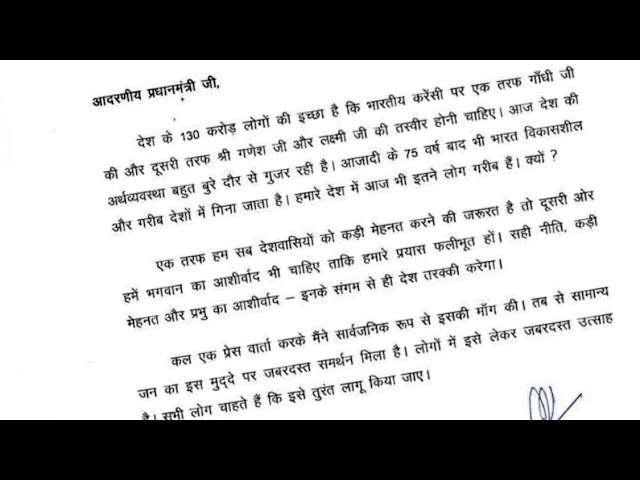 आदरणीय प्रधानमंत्री जी,
देश के 130 करोड़ लोगों की इच्छा है कि भारतीय करेंसी पर एक तरफ गाँधी जी
की और दूसरी तरफ श्री गणेश जी और लक्ष्मी जी की तस्वीर होनी चाहिए। आज देश की
अर्थव्यवस्था बहुत बुरे दौर से गुजर रही है। आजादी के 75 वर्ष बाद भी भारत विकासशील
और गरीब देशों में गिना जाता है। हमारे देश में आज भी इतने लोग गरीब हैं। क्यों ?
एक तरफ हम सब देशवासियों को कड़ी मेहनत करने की जरूरत है तो दूसरी ओर
हमें भगवान का आशीर्वाद भी चाहिए ताकि हमारे प्रयास फलीभूत हों। सही नीति, कड़ी
मेहनत और प्रभु का आशीर्वाद – इनके संगम से ही देश तरक्की करेगा।
कल एक प्रेस वार्ता करके मैंने सार्वजनिक रूप से इसकी माँग की। तब से सामान्य
जन का इस मुद्दे पर जबरदस्त समर्थन मिला है। लोगों में इसे लेकर जबरदस्त उत्साह
है। सभी लोग चाहते हैं कि इसे तुरंत लागू किया जाए।